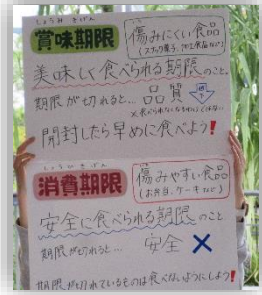 しょうみ きげん
賞味期限
傷みにくい食品
(スナック菓子、加工食品など)
美味しく食べられる期限のこと。
期限が切れると… 品質
開封したら早めに食べよう!
しょうひ きげん
消費期限
傷みやすい食品
(お弁当、ケーキなど)
安全に食べられる期限のこと
期限が切れると… 安全 ✕
期限が切れているものは食べないようにしよう!